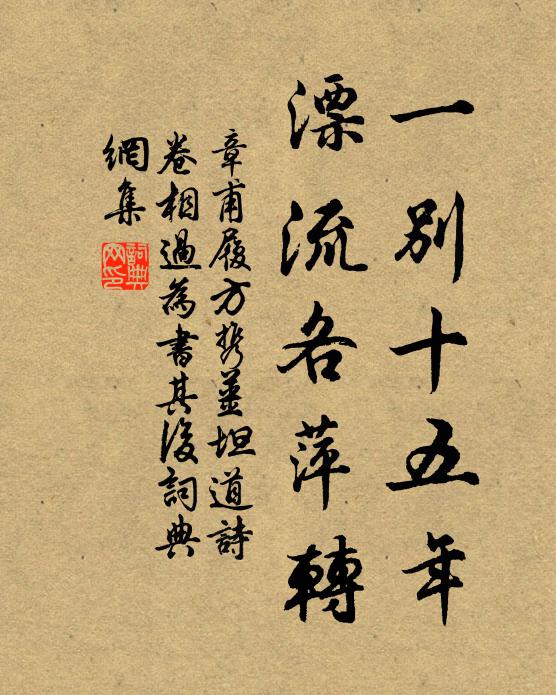 一别十五年
漂流各萍轉
章甫履方携薑坦道詩
卷相過為書其後詞典
網集
詞典
网印